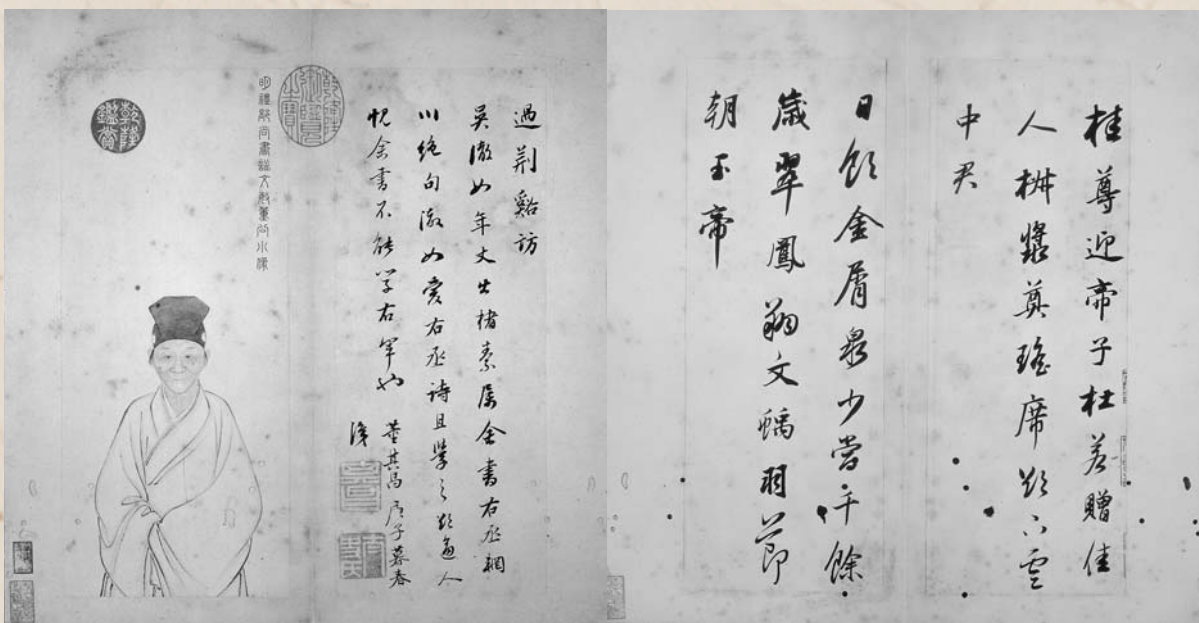 桂尊迎帝子杜若贈佳
人椒漿奠瑤席欲下雲
中君
日飲金屑泉少當千餘
歲翠鳳翔文螭羽節
朝玉帝
過荊谿訪
吳澈如年丈出楮素屬余書右丞輞
川絕句澈如愛右丞詩且學之欲逼人
愧余書不能學右軍也 董其昌 庚子暮春
識
乾隆御覽之寶
明禮部尚書諡文敏董公小像
乾隆鑑賞